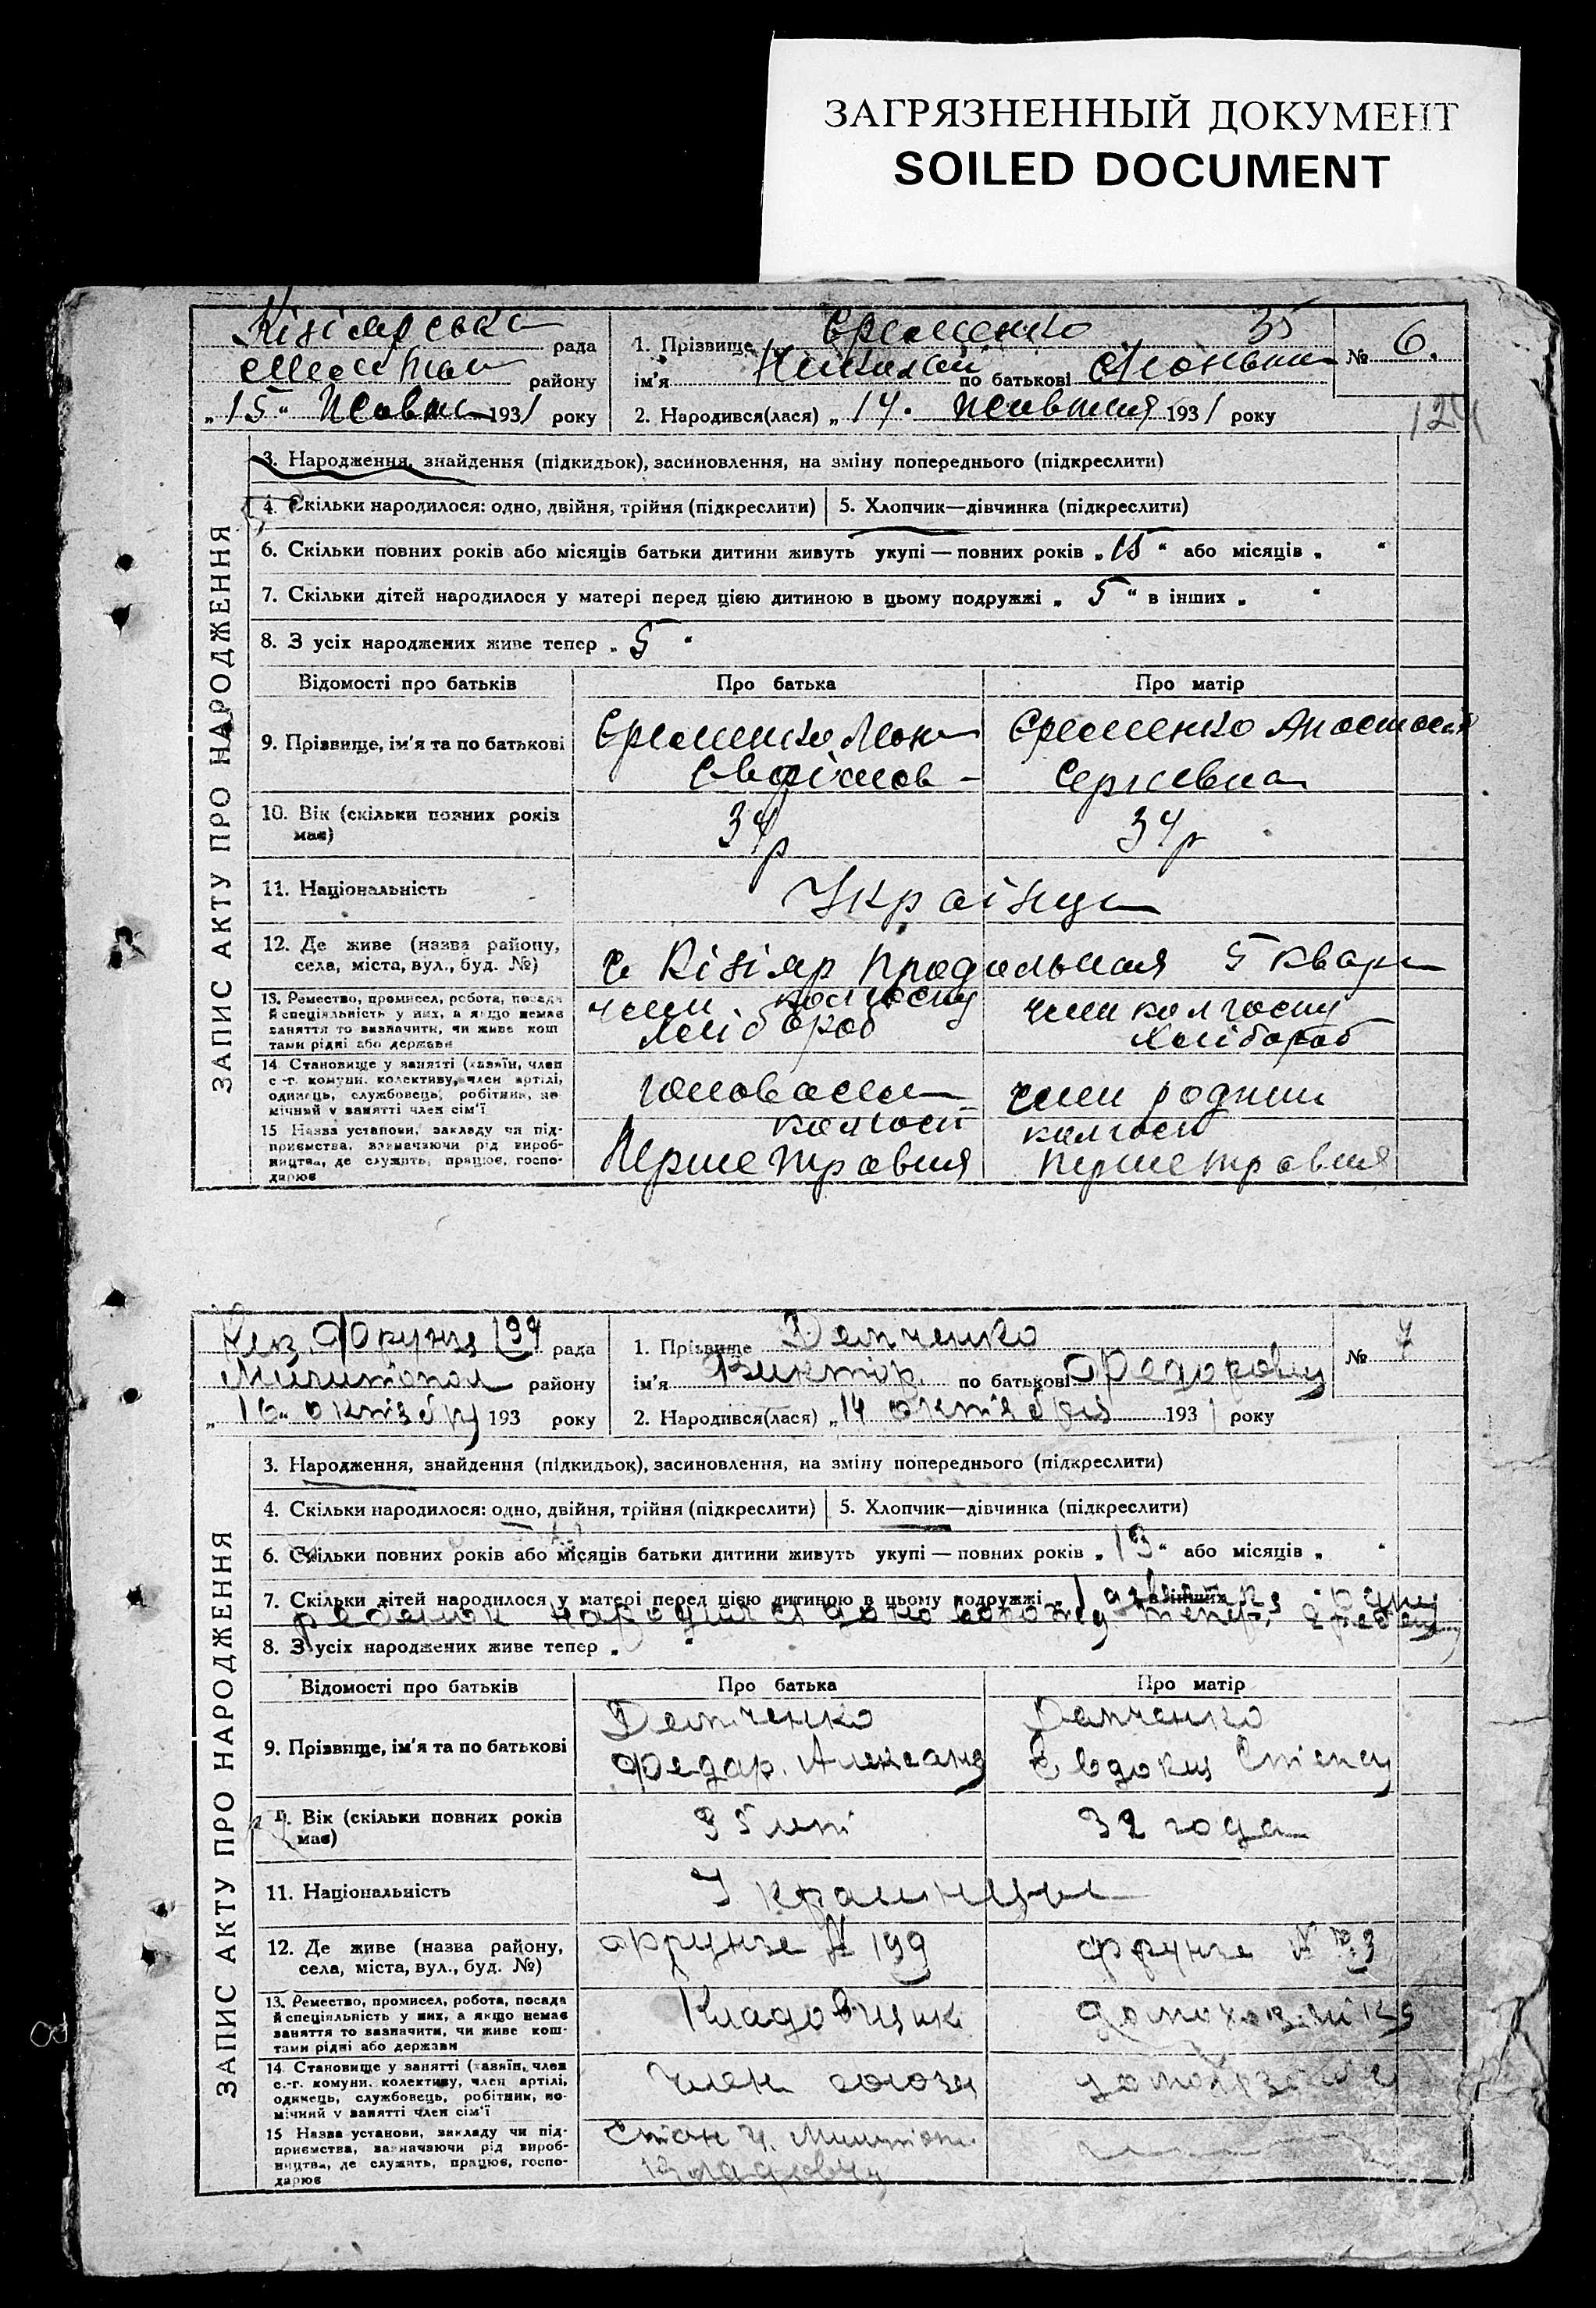 ЗАГРЯЗНЕННЫЙ ДОКУМЕНТ
SOILED DOCUMENT
Кізіярська рада
району
„15“ Жовтн 1931 року
1. Прізвище Єременко 35
ім'я Николай по батькові
2. Народився(лася) „14. Жовтня 1931 року
№ 6.
124
ЗАПИС АКТУ ПРО НАРОДЖЕННЯ
3. Народження, знайдення (підкидьок), засиновлення, на зміну попереднього (підкреслити)
4. Скільки народилося: одно, двійня, трійня (підкреслити) 5. Хлопчик—дівчинка (підкреслити)
6. Скільки повних років або місяців батьки дитини живуть укупі — повних років „15“ або місяців „ “
7. Скільки дітей народилося у матері перед цією дитиною в цьому подружжі „ 5 “ в інших „ “
8. З усіх народжених живе тепер „ 5 “
Відомості про батьків Про батька Про матір
9. Прізвище, ім'я та по батькові
Єременко Леон
Єременко Анастасія
Сергієвна
10. Вік (скільки повних років має)
34 р
34 р
11. Національність
Українці
12. Де живе (назва району, села, міста, вул., буд. №)
с Кізіяр Продольная 5 квар
13. Ремество, промисел, робота, посада й спеціяльність у них, а якщо немає заняття то зазначити, чи живе коштами рідні або держави
член колгоспу
хлібороб
член колгоспу
хлібороб
14. Становище у занятті (хазяїн, член с.-г. комуни, колективу, член артілі, одинець, службовець, робітник, помічний у занятті член сім'ї
член родини
15 Назва установи, закладу чи підприємства, зазначаючи рід виробництва, де служить, працює, господарює
колгосп
Перше травня
колгосп
Перше травня
Фрунзе 199 рада
Мелитопол району
„16“ октября 193 року
1. Прізвище Демченко
ім'я Виктор по батькові Федорович
2. Народився(лася) „14 октября 1931 року
№ 7
ЗАПИС АКТУ ПРО НАРОДЖЕННЯ
3. Народження, знайдення (підкидьок), засиновлення, на зміну попереднього (підкреслити)
4. Скільки народилося: одно, двійня, трійня (підкреслити) 5. Хлопчик—дівчинка (підкреслити)
6. Скільки повних років або місяців батьки дитини живуть укупі — повних років „13“ або місяців „ “
7. Скільки дітей народилося у матері перед цією дитиною в цьому подружжі
8. З усіх народжених живе тепер „ “
Відомості про батьків Про батька Про матір
9. Прізвище, ім'я та по батькові
Демченко
Федор. Александ
Демченко
Евдокия
Вік (скільки повних років має)
35 лет
32 года
11. Національність
Украинцы
12. Де живе (назва району, села, міста, вул., буд. №)
Фрунзе № 199
Фрунзе № 199
13. Ремество, промисел, робота, посада й спеціяльність у них, а якщо немає заняття то зазначити, чи живе коштами рідні або держави
Кладовщик
домохозяйка
14. Становище у занятті (хазяїн, член с.-г. комуни, колективу, член артілі, одинець, службовець, робітник, помічний у занятті член сім'ї
Член союза
15 Назва установи, закладу чи підприємства, зазначаючи рід виробництва, де служить, працює, господарює